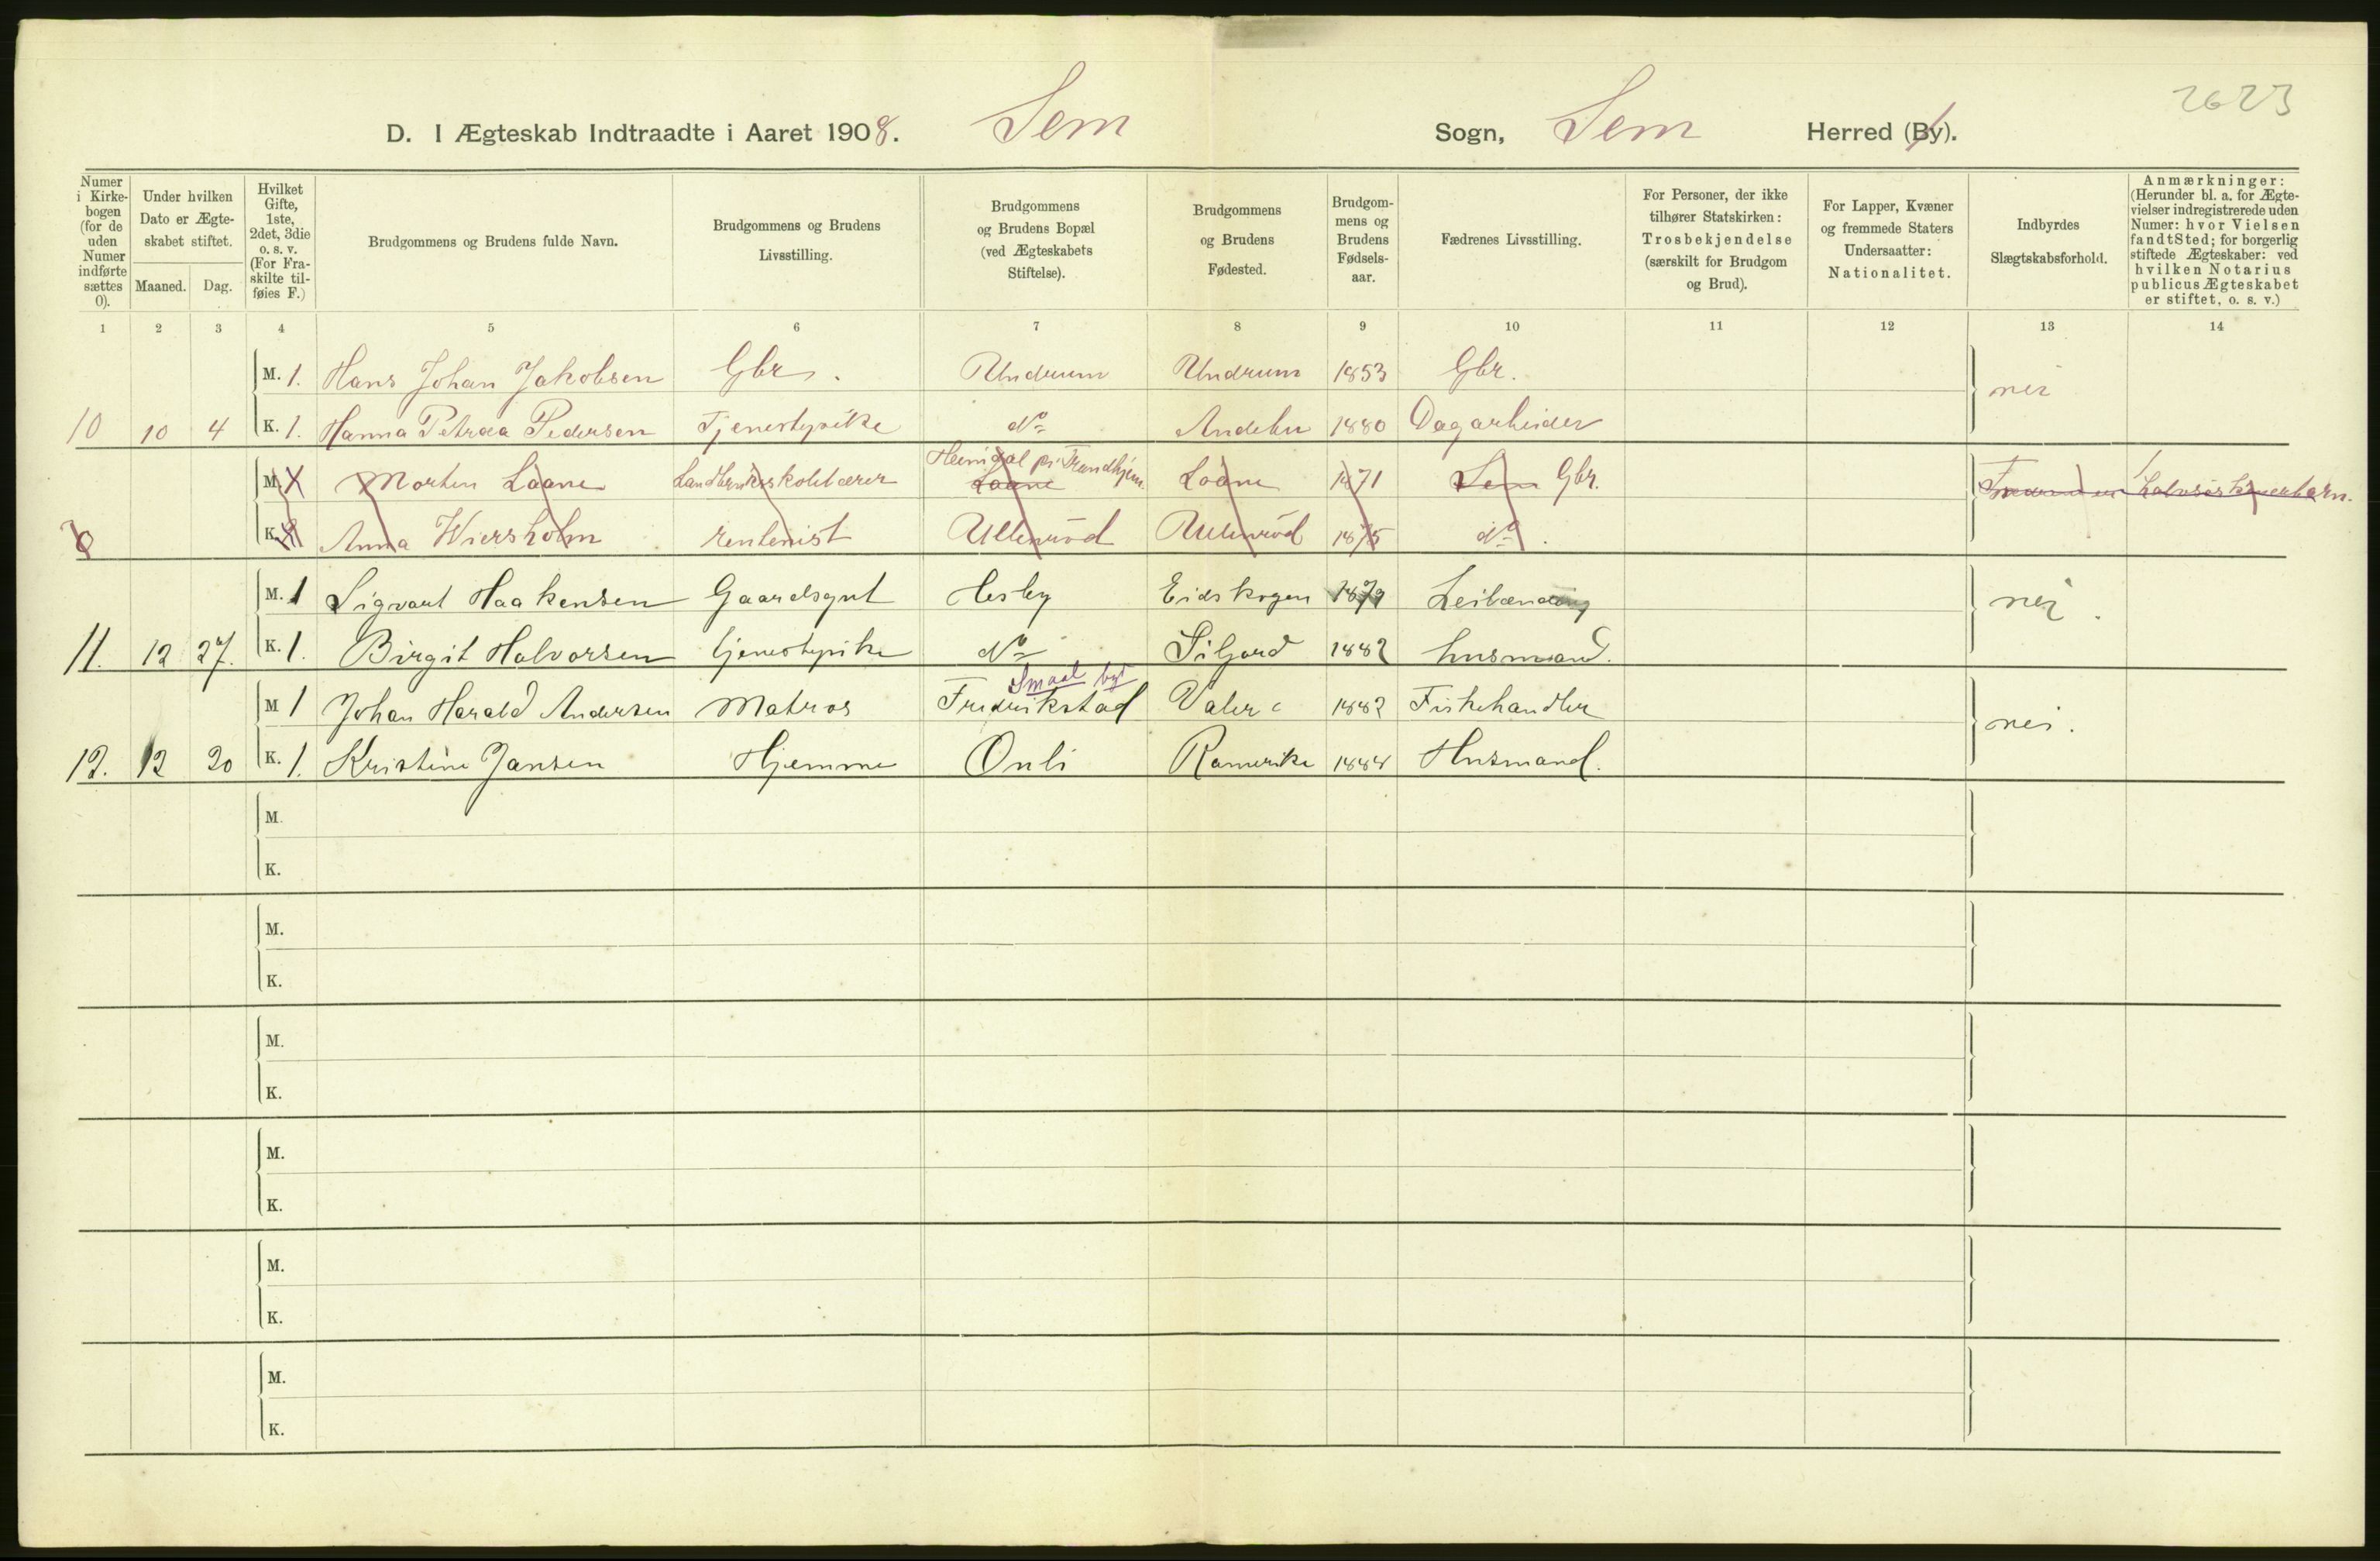 2623
D. I Ægteskab Indtraadte i Aaret 1908. Sem Sogn, Sem Herred (By).
Numer i Kirkebogen (for de uden Numer indførte sættes 0).
Under hvilken Dato er Ægteskabet stiftet.
Maaned. Dag.
Hvilket Gifte, 1ste, 2det, 3die o. s. v. (For Fraskilte tilføies F.)
Brudgommens og Brudens fulde Navn.
Brudgommens og Brudens Livsstilling.
Brudgommens og Brudens Bopæl (ved Ægteskabets Stiftelse).
Brudgommens og Brudens Fødested.
Brudgommens og Brudens Fødselsaar.
Fædrenes Livsstilling.
For Personer, der ikke tilhører Statskirken: Trosbekjendelse (særskilt for Brudgom og Brud).
For Lapper, Kvæner og fremmede Staters Undersaatter: Nationalitet.
Indbyrdes Slægtskabsforhold.
Anmærkninger: (Herunder bl. a. for Ægtevielser indregistrerede uden Numer: hvor Vielsen fandt Sted; for borgerlig stiftede Ægteskaber: ved hvilken Notarius publicus Ægteskabet er stiftet, o. s. v.)
1 2 3 4 5 6 7 8 9 10 11 12 13 14
M. 1. Hans Johan Jakobsen Gbr. Undrum Undrum 1853 Gbr. nei
10 10 4 K. 1. Hanna Petrea Pedersen Tjenestepike do Andebu 1880 Dagarbeider
M. Morten Laane Landbruksskolelærer Heimdal pr. Trondhjem Laane Laane 1871 Sem Gbr.
0 K. Anna Wiersholm rentenist Ullenrød Ullenrød 1875 do.
M. 1 Sigvart Haakensen Gaardsgut Hesby Eidskogen 1879 nei.
11. 12 27. K. 1. Birgit Halvorsen tjenestepike do Siljord 1882 husmand.
M 1 Johan Harald Andersen Matros Fredrikstad Valer 1882 Fiskehandler nei.
12. 12 20 K. 1. Kristine Jansen Hjemme Onli Romerike 1884 Husmand.
M.
K.
M.
K.
M.
K.
M.
K.
M.
K.
M.
K.